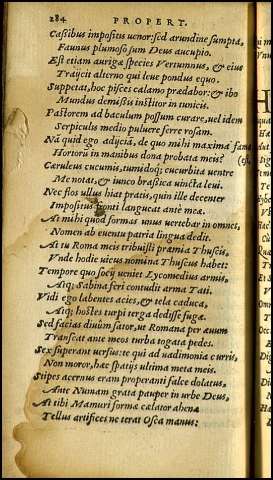 284 PROPERT.
Cassibus impositus uenor: sed arundine sumpta,
Faunus plumoso sum Deus aucupio.
Est etiam aurigæ species Vertumnus, & eius
Traijcit alterno qui leue pondus equo.
Suppetat, hoc pisces calamo prædabor: & ibo
Mundus demissis institor in tunicis.
Pastorem ad baculum possum curare, uel idem
Serpiculis medio puluere ferre rosam.
Nã quid ego adijciã, de quo mihi maxima fama
Hortorū in manibus dona probata meis? (est,
Cæruleus cucumis, tumidoq; cucurbita uentre
Me notat, & iunco brassica uincta leui.
Nec flos ullus hiat pratis, quin ille decenter
Impositus fronti langueat ante meã.
At mihi quod formas unus uertebar in omnes,
Nomen ab euentu patria lingua dedit.
At tu Roma meis tribuisti præmia Thuscis,
Vnde hodie uicus nomina Thuscus habet:
Tempore quo socijs uenit Lycomedius armis,
Atq; Sabina feri contudit arma Tati.
Vidi ego labentes acies, & tela caduca,
Atq; hostes turpi terga dedisse fugæ.
Sed facias diuûm sator, ut Romana per æuum
Transeat ante meos turba togata pedes.
Sex superant uersus: te qui ad uadimonia curris,
Non moror, hæc spatijs ultima meta meis.
Stipes acernus eram properanti falce dolatus,
Ante Numam grata pauper in urbe Deus,
At tibi Mamuri formæ cælator ahenæ
Tellus artifices ne terat Osca manus: